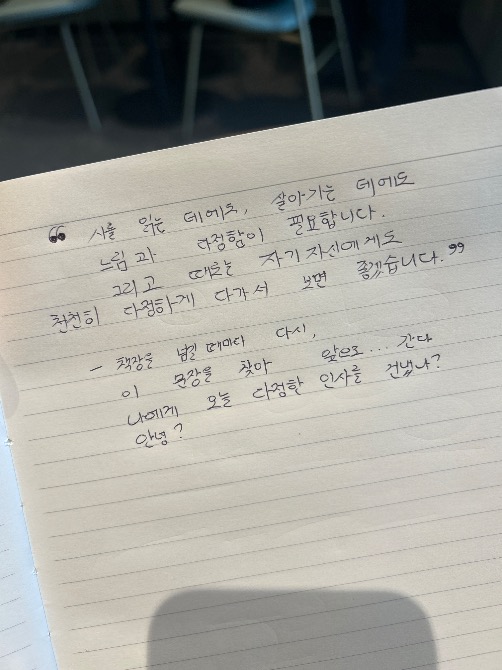 ❝ 시를 읽는 데에도, 살아가는 데에도
느림과 다정함이 필요합니다.
그리고 때로는 자기 자신에게도
천천히 다정하게 다가서 보면 좋겠습니다.❞
- 책장을 넘길 때마다 다시,
이 문장을 찾아 앞으로... 간다
나에게 오늘 다정한 인사를 건넸나?
안녕?